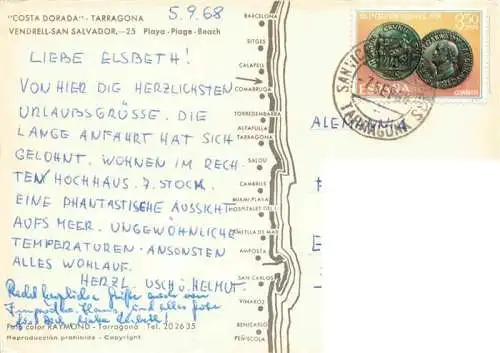 "COSTA DORADA" - TARRAGONA
VENDRELL-SAN SALVADOR,—25 Playa-Plage-Beach
5.9.68
LIEBE ELSBETH!
VON HIER DIE HERZLICHSTEN
URLAUBSGRÜSSE. DIE
LANGE ANFAHRT HAT SICH
GELOHNT. WOHNEN IM RECH-
TEN HOCHHAUS. 7. STOCK.
EINE PHANTASTISCHE AUSSICHT
AUFS MEER. UNGEWÖHNLICHE
TEMPERATUREN. ANSONSTEN
ALLES WOHLAUF.
HERZL. USCH U. HELMUT.
Recht herzliche Grüße auch von
und alles gute
für Dich liebe Elsbeth!
Foto color RAYMOND - Tarragona Tel. 20 26 35
Reproducción prohibida - Copyright
BARCELONA
SITGES
CALAFELL
COMARRUGA
TORREDEMBARRA
ALTAFULLA
TARRAGONA
SALOU
CAMBRILS
MIAMI PLAYA
HOSPITALET DEL I.
AMETLLA DE MAR
AMPOSTA
SAN CARLOS
VINAROZ
BENICARLO
PEÑISCOLA
ESPAÑA
CORREOS
3,50
PTAS
SAN VICE
TARRAGONA
ALEMANIA